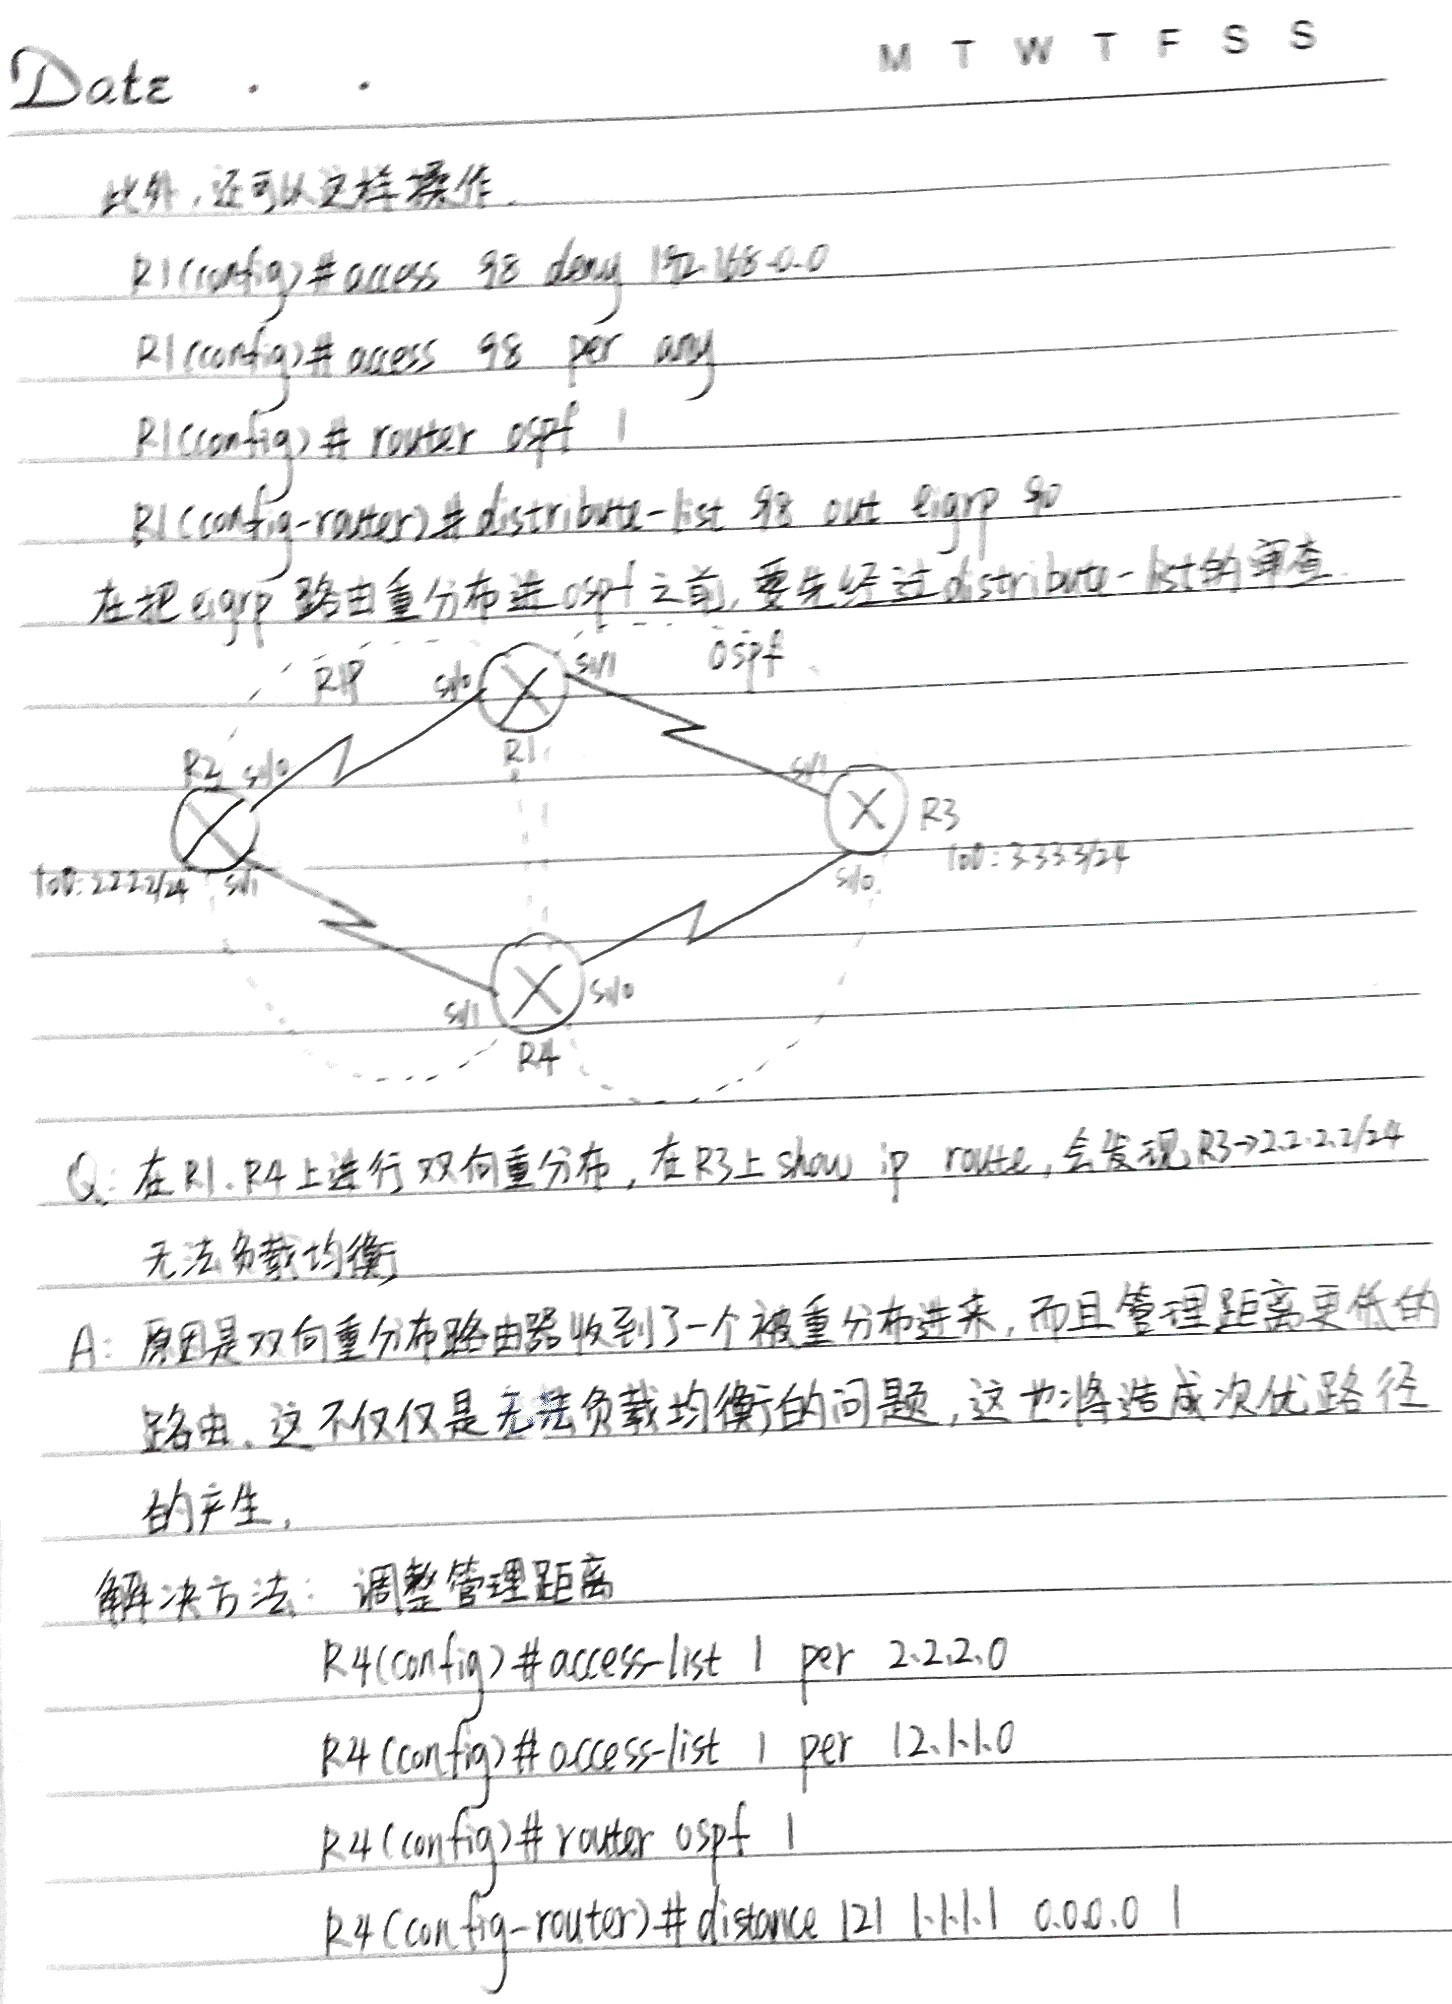 M T W T F S S
Date . .
此外,还可以这样操作.
R1(config)#access 98 deny 192.168.0.0
R1(config)#access 98 per any
R1(config)# router ospf 1
R1(config-router)#distribute-list 98 out eigrp 90
在把eigrp路由重分布进ospf之前,要先经过distribute-list的审查.
RIP
s1/0
s1/1
ospf
R1
R2
s1/0
s1/1
R3
lo0:2.2.2.2/24
s1/1
s1/0
lo0:3.3.3.3/24
s1/1
s1/0
R4
Q: 在R1.R4上进行双向重分布,在R3上show ip route,会发现R3→2.2.2.2/24
无法负载均衡
A: 原因是双向重分布路由器收到了一个被重分布进来,而且管理距离更低的
路由.这不仅仅是无法负载均衡的问题,这也将造成次优路径
的产生.
解决方法: 调整管理距离
R4(config)#access-list 1 per 2.2.2.0
R4(config)#access-list 1 per 12.1.1.0
R4(config)#router ospf 1
R4(config-router)#distance 121 1.1.1.1 0.0.0.0 1